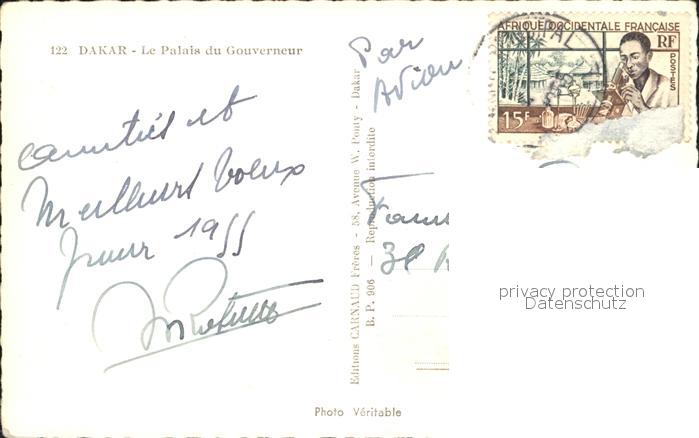 122 DAKAR - Le Palais du Gouverneur
Par
Avion
AFRIQUE OCCIDENTALE FRANÇAISE
RF
POSTES
15F
amitiés et
Meilleurs Voeux
pour 1955
Editions CARNAUD Frères - 58, Avenue W. Ponty - Dakar
B. P. 906 — Reproduction interdite
privacy protection
Datenschutz
Photo Véritable